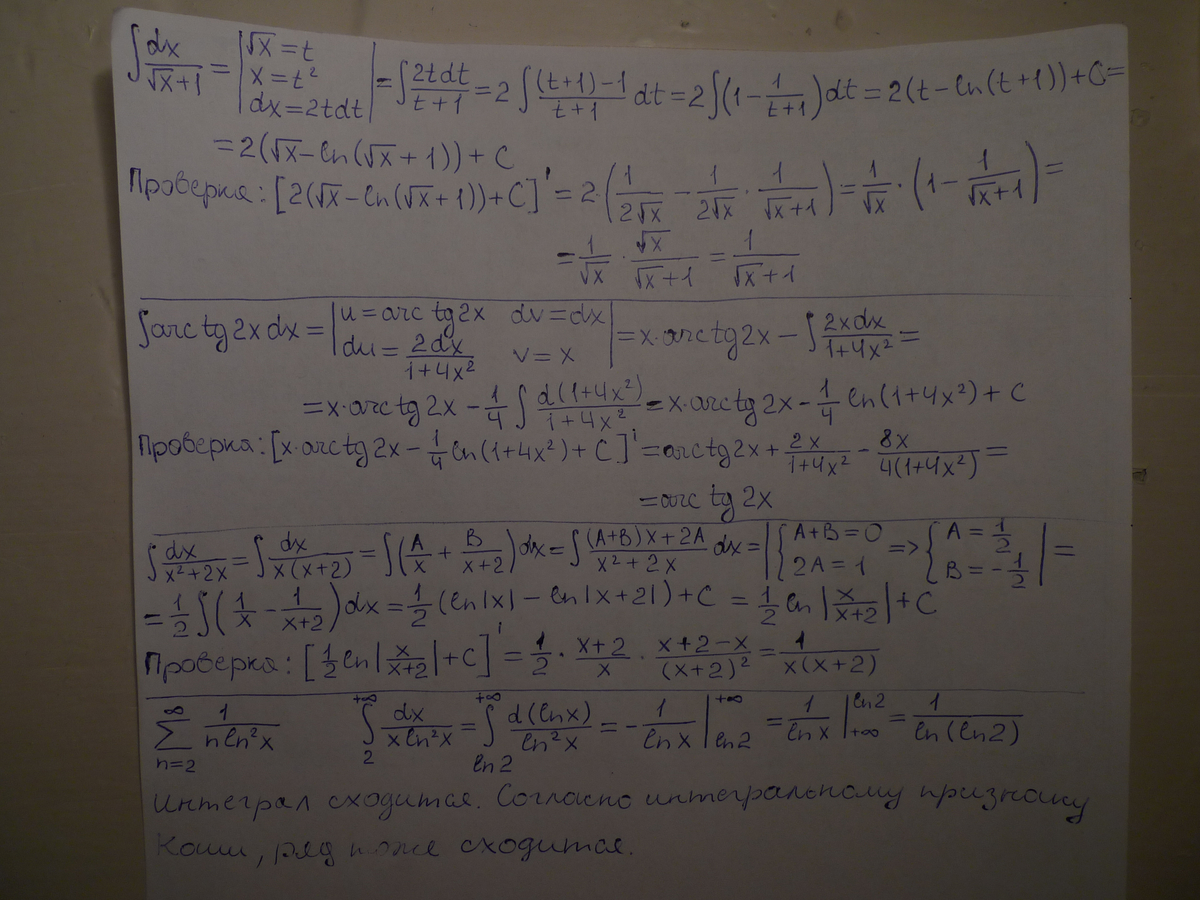 ∫ dx/(√x+1) = | √x = t; x = t²; dx = 2tdt | = ∫ 2tdt/(t+1) = 2 ∫ ((t+1)-1)/(t+1) dt = 2∫(1 - 1/(t+1))dt = 2(t-ln(t+1))+C =
= 2(√x-ln(√x+1))+C
Проверка: [2(√x-ln(√x+1))+C]' = 2·(1/(2√x) - 1/(2√x) · 1/(√x+1)) = 1/√x · (1 - 1/(√x+1)) =
= 1/√x · √x/(√x+1) = 1/(√x+1)
∫arctg2xdx = | u=arctg2x dv=dx; du = 2dx/(1+4x²) v=x | = x·arctg2x - ∫ 2xdx/(1+4x²) =
= x·arctg2x - 1/4 ∫ d(1+4x²)/(1+4x²) = x·arctg2x - 1/4 ln(1+4x²)+C
Проверка: [x·arctg2x - 1/4 ln(1+4x²)+C]' = arctg2x + 2x/(1+4x²) - 8x/(4(1+4x²)) =
= arctg2x
∫ dx/(x²+2x) = ∫ dx/(x(x+2)) = ∫(A/x + B/(x+2))dx = ∫ ((A+B)x+2A)/(x²+2x) dx = | { A+B=0; 2A=1 => { A=1/2; B=-1/2 | =
= 1/2 ∫(1/x - 1/(x+2))dx = 1/2 (ln|x| - ln|x+2|)+C = 1/2 ln|x/(x+2)|+C
Проверка: [1/2 ln|x/(x+2)|+C]' = 1/2 · (x+2)/x · (x+2-x)/(x+2)² = 1/(x(x+2))
∑_{n=2}^{∞} 1/(n ln²x) ∫_{2}^{+∞} dx/(x ln²x) = ∫_{ln2}^{+∞} d(lnx)/ln²x = - 1/lnx |_{ln2}^{+∞} = 1/lnx |_{+∞}^{ln2} = 1/ln(ln2)
Интеграл сходится. Согласно интегральному признаку
Коши, ряд тоже сходится.